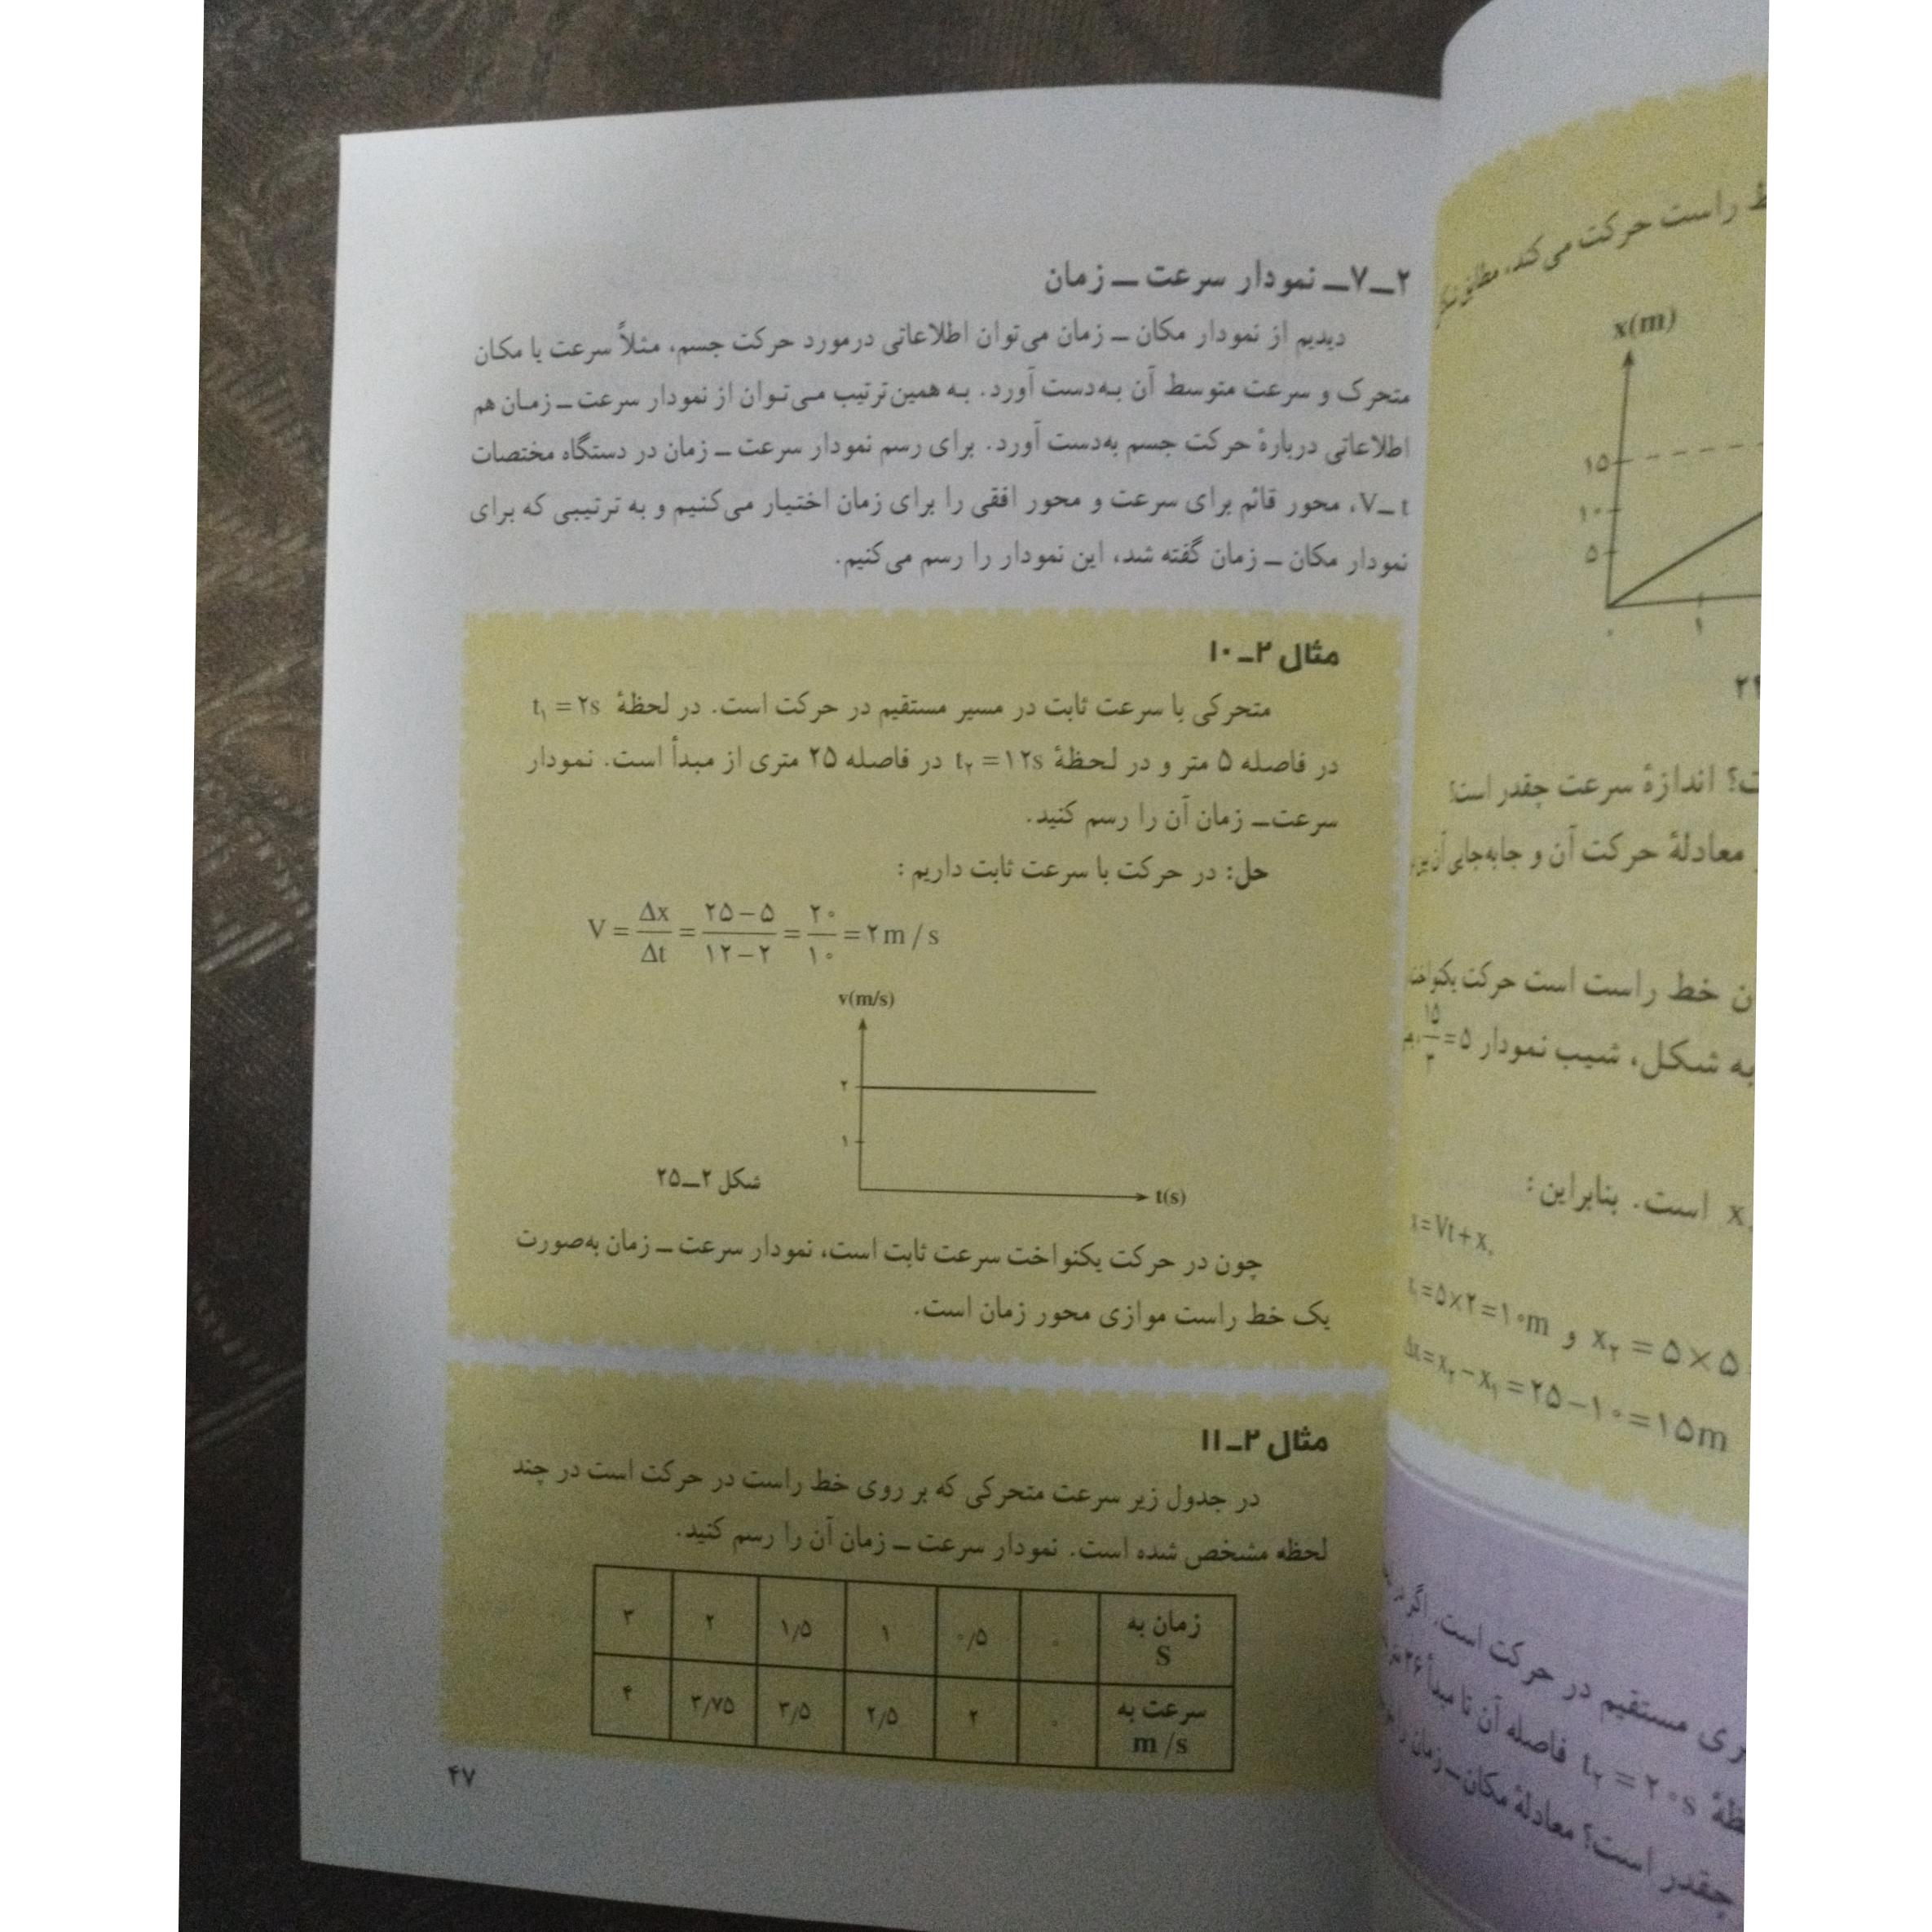 ۲ــ۷ــ نمودار سرعت ــ زمان
دیدیم از نمودار مکان ــ زمان می‌توان اطلاعاتی درمورد حرکت جسم، مثلاً سرعت یا مکان
متحرک و سرعت متوسط آن به‌دست آورد. به همین‌ترتیب می‌توان از نمودار سرعت ــ زمان هم
اطلاعاتی دربارهٔ حرکت جسم به‌دست آورد. برای رسم نمودار سرعت ــ زمان در دستگاه مختصات
V_t، محور قائم برای سرعت و محور افقی را برای زمان اختیار می‌کنیم و به ترتیبی که برای
نمودار مکان ــ زمان گفته شد، این نمودار را رسم می‌کنیم.
مثال ۲ــ۱۰
متحرکی با سرعت ثابت در مسیر مستقیم در حرکت است. در لحظهٔ t₁ = ۲s
در فاصله ۵ متر و در لحظهٔ t₂ = ۱۲s در فاصله ۲۵ متری از مبدأ است. نمودار
سرعت ــ زمان آن را رسم کنید.
حل: در حرکت با سرعت ثابت داریم :
V = Δx/Δt = (۲۵ − ۵)/(۱۲ − ۲) = ۲۰/۱۰ = ۲ m / s
v(m/s)
۲
۱
t(s)
شکل ۲ــ۲۵
چون در حرکت یکنواخت سرعت ثابت است، نمودار سرعت ــ زمان به‌صورت
یک خط راست موازی محور زمان است.
مثال ۲ــ۱۱
در جدول زیر سرعت متحرکی که بر روی خط راست در حرکت است در چند
لحظه مشخص شده است. نمودار سرعت ــ زمان آن را رسم کنید.
زمان به S ۰ ۰/۵ ۱ ۱/۵ ۲ ۳
سرعت به m /s ۰ ۲ ۲/۵ ۳/۵ ۳/۷۵ ۴
۴۷
راست حرکت می‌کند، مطابق
x(m)
۱۵
۱۰
۵
۱
اندازهٔ سرعت چقدر است؟
معادلهٔ حرکت آن و جابه‌جایی آن
خط راست است حرکت
به شکل، شیب نمودار ۱۵/۳ = ۵
است. بنابراین :
x = Vt + x₀
x₁ = ۵×۲ = ۱۰m و x₂ = ۵×۵
Δx = x₂ − x₁ = ۲۵ − ۱۰ = ۱۵m
مستقیم در حرکت است. اگر
t₂ = ۲۰s فاصله آن تا مبدأ ۲۶
چقدر است؟ معادلهٔ مکان ــ زمان